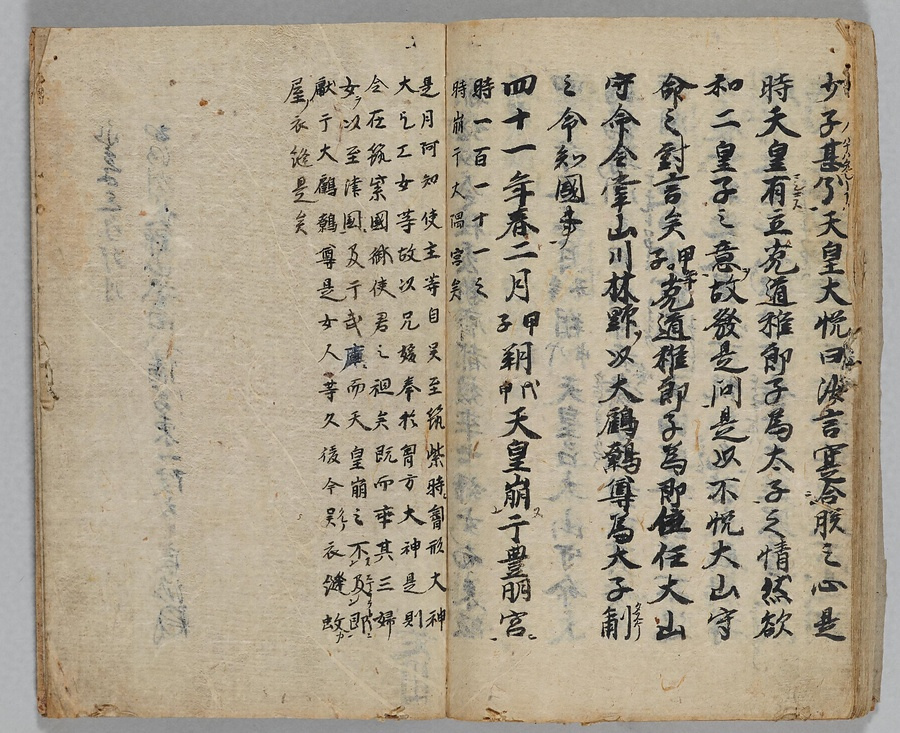 少子甚不天皇大悦曰汝言寔合朕之心是
時天皇有立菟道稚郎子為太子之情然欲
和二皇子之意故發是問是以不悦大山守
命之對言矣甲子年菟道稚郎子為即任大山
守命令掌山川林野以大鷦鷯尊為太子輔
之令知國事
四十一年春二月甲午朔戊申天皇崩于豊明宮
時一百一十一之
時崩于大隅宮矣
是月阿知使主等自吴至筑紫時胷形大神
大乞工女等故以兄媛奉於胷方大神是則
今在筑紫國御使君之祖矣既而率其三婦
女以至津國及于武庫而天皇崩之不及即
献于大鷦鷯尊是女人等久後今吴衣縫蚊
屋衣縫是矣